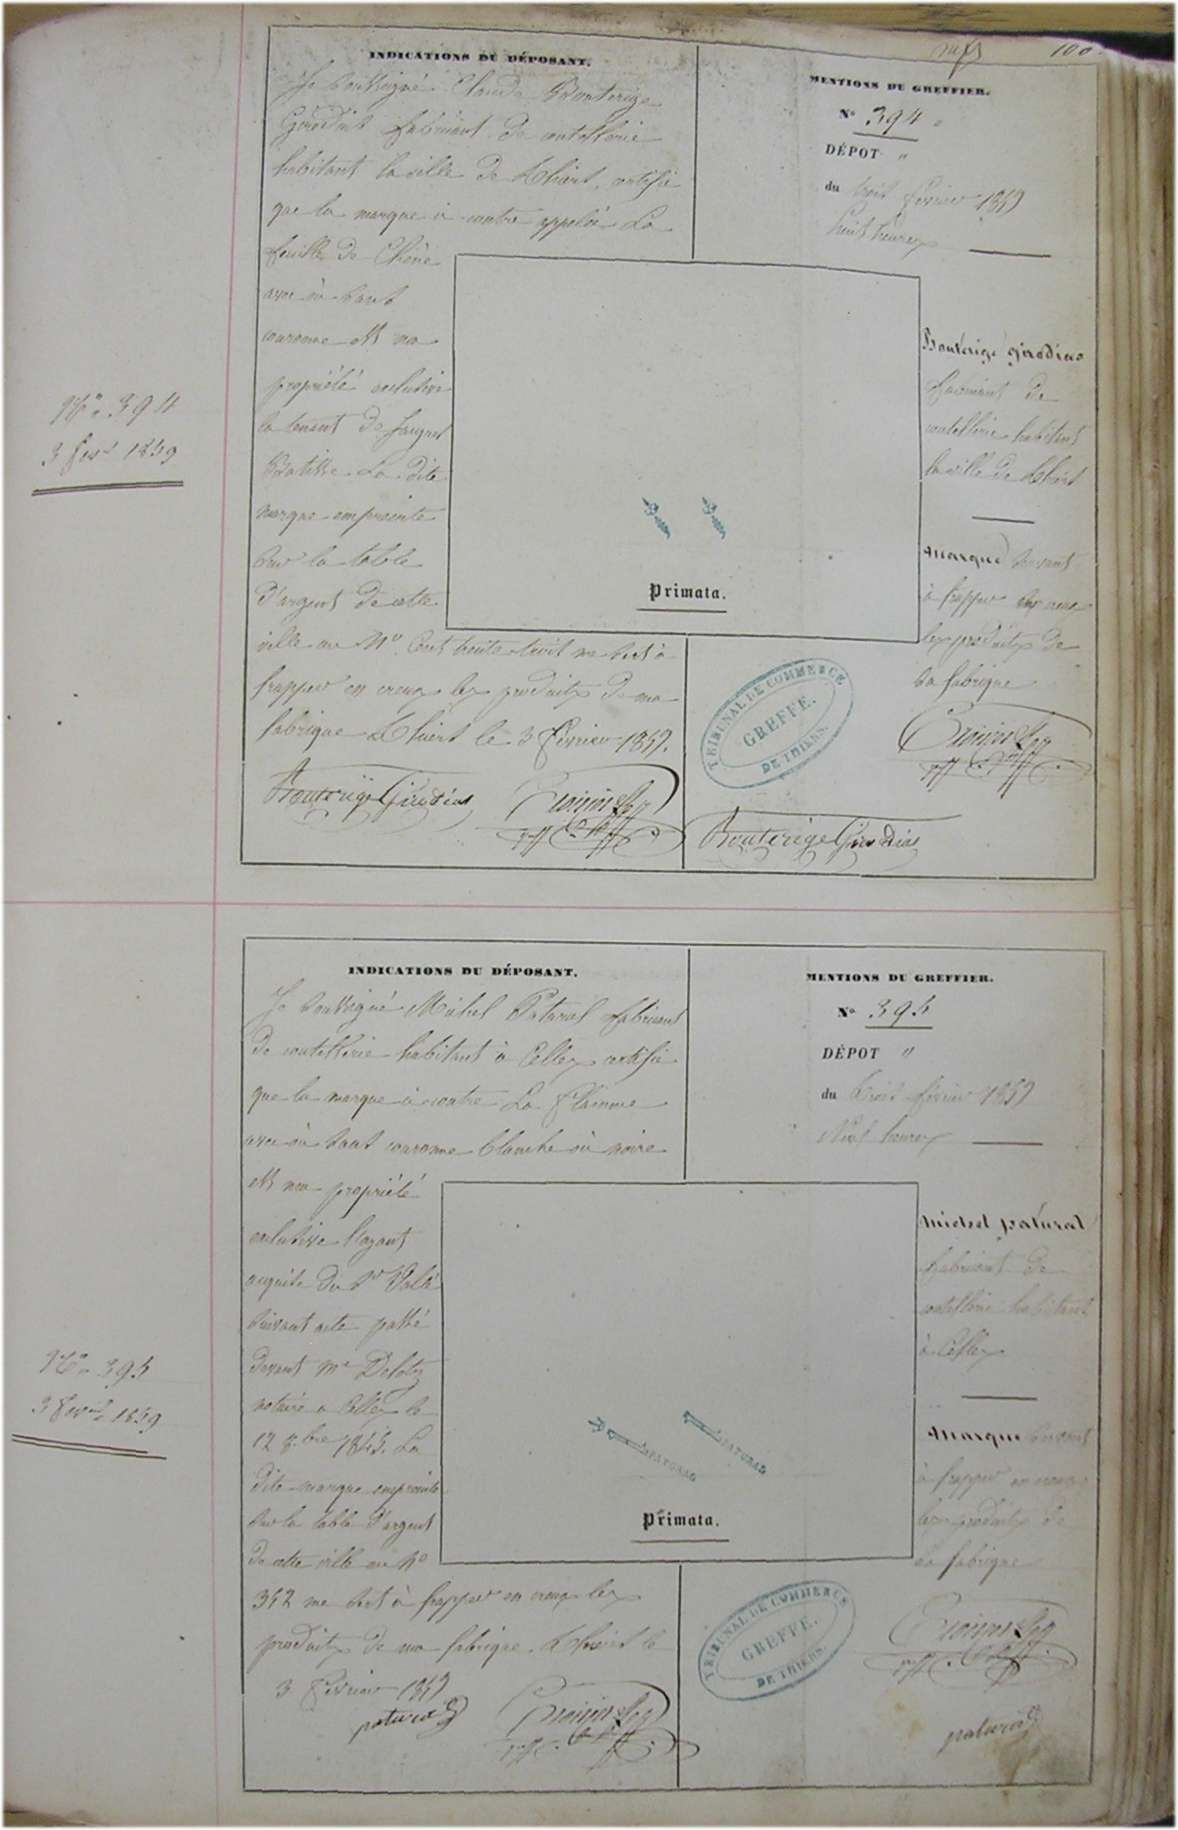 100
N° 394
3 fev. 1859
INDICATIONS DU DÉPOSANT.
Je soussigné Claude Bouterige
Girodias fabricant de coutellerie
habitant la ville de Thiers, certifie
que la marque ci contre appelée La
feuille de Chêne
avec ou sans
couronne est ma
propriété exclusive
la tenant de
La dite
marque empreinte
sur la table
d'argent de cette
ville au N° Cent trente huit me sert à
frapper en creux les produits de ma
fabrique Thiers le 3 février 1859.
Bouterige Girodias
MENTIONS DU GREFFIER.
N° 394
DÉPOT "
du trois février 1859
huit heures
Bouterige girodias
fabricant de
coutellerie habitant
la ville de Thiers
Marque servant
à frapper en creux
les produits de
sa fabrique
Primata.
TRIBUNAL DE COMMERCE
GREFFE.
DE THIERS.
Bouterige Girodias
N° 395
3 fev. 1859
INDICATIONS DU DÉPOSANT.
Je soussigné Michel Patural fabricant
de coutellerie habitant à Celles certifie
que la marque ci contre La Flamme
avec ou sans couronne blanche ou noire
est ma propriété
exclusive l'ayant
acquise du Sr
suivant acte passé
devant Me
notaire à Celles le
12 8.bre 1845. La
dite marque empreinte
sur la table d'argent
de cette ville au N°
352 me sert à frapper en creux les
produits de ma fabrique. Thiers le
3 février 1859
patural
MENTIONS DU GREFFIER.
N° 395
DÉPOT "
du trois février 1859
Neuf heures
michel patural
fabricant de
coutellerie habitant
à Celles
Marque servant
à frapper en creux
les produits de
sa fabrique
PATURAL
PATURAL
Primata.
TRIBUNAL DE COMMERCE
GREFFE.
DE THIERS.
patural